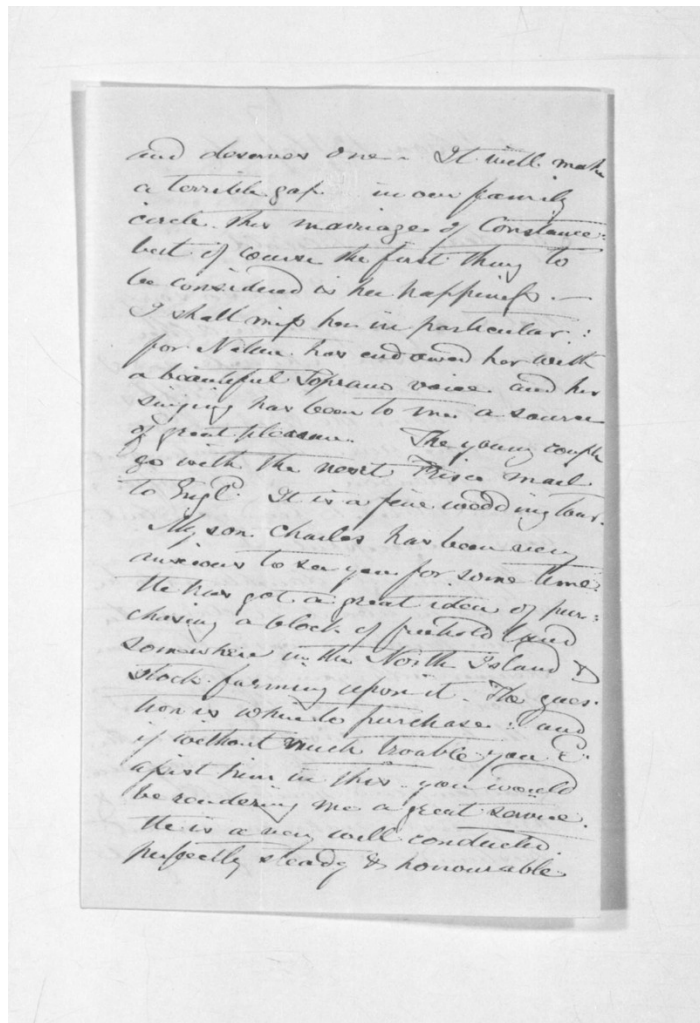 and deserves one. It will make
a terrible gap in our family
circle this marriage of Constance:
but of course the first thing to
be considered is her happiness. —
I shall miss her in particular:
for Nature has endowed her with
a beautiful Soprano voice and her
singing has been to me a source
of great pleasure. The young couple
go with the next Frisco mail
to Engld. It is a fine wedding tour.
My son Charles has been very
anxious to see you for some time.
He has got a great idea of pur:
chasing a block of freehold land
somewhere in the North Island &
stock farming upon it. The ques:
tion is where to purchase: and
if without much trouble you cd.
assist him in this you would
be rendering me a great service.
He is a very well conducted
perfectly steady & honourable